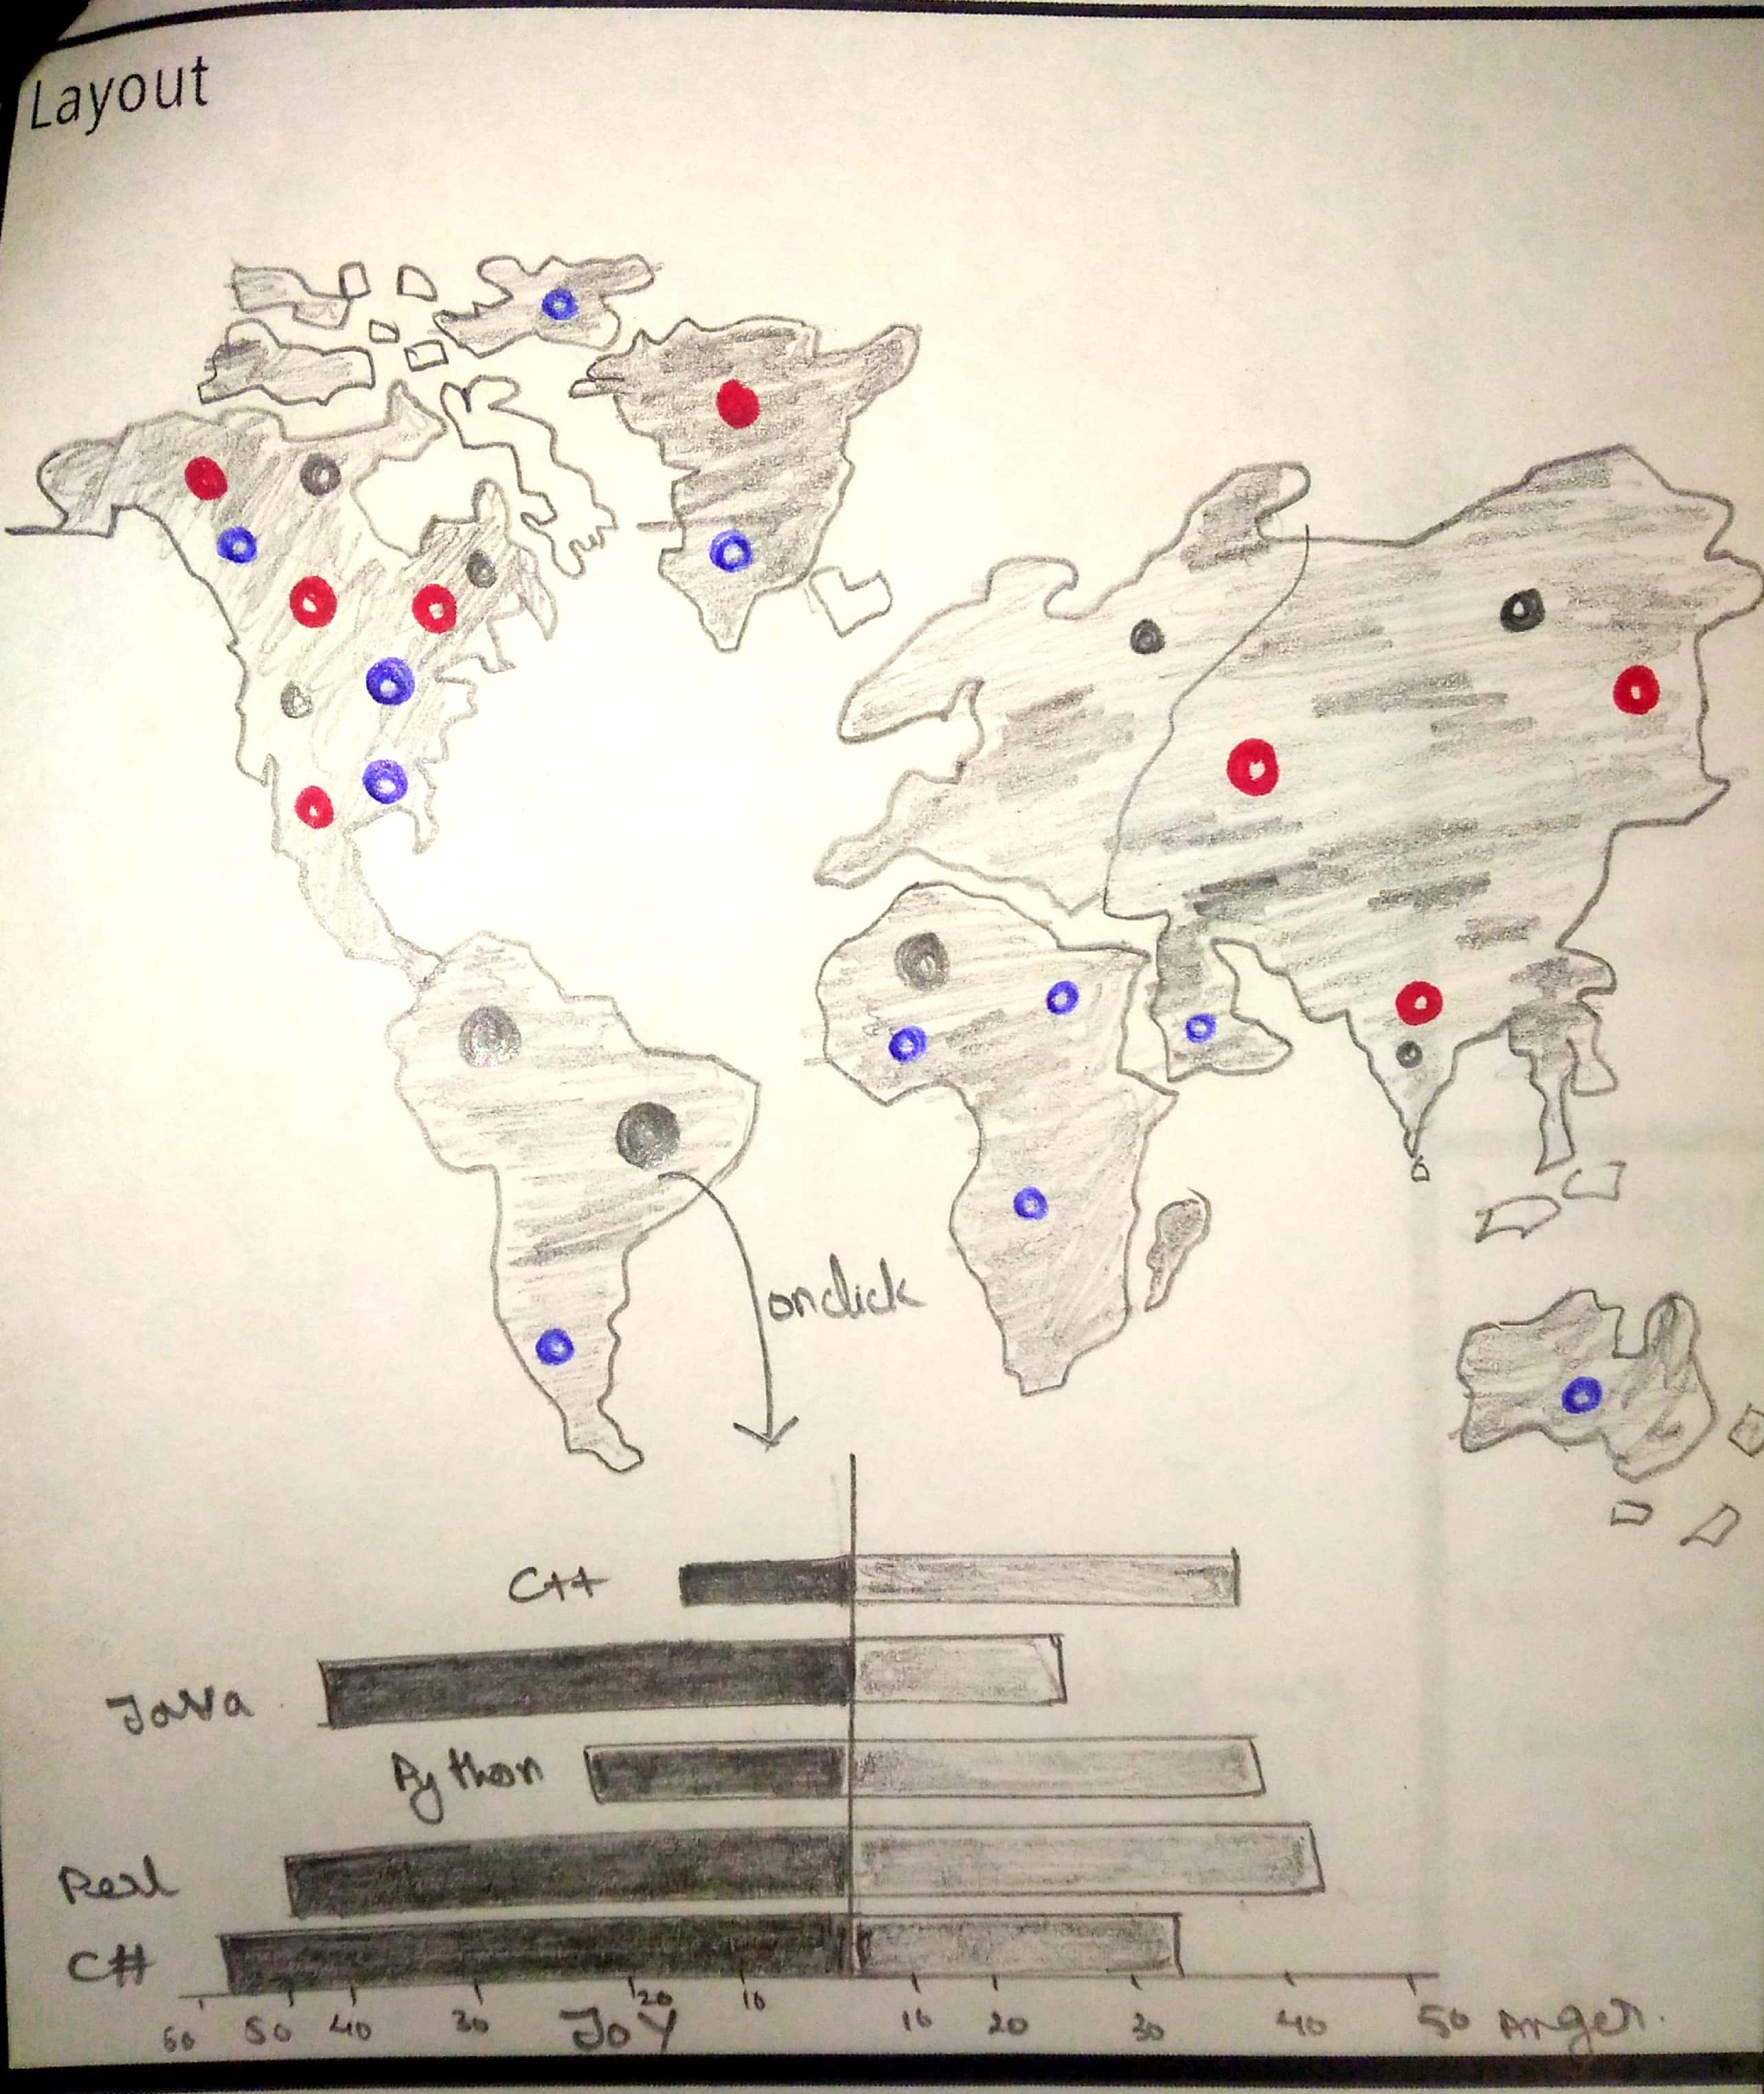 Layout
onclick
C++
Java
Python
Perl
C#
60 50 40 30 20 10 10 20 30 40 50
Joy Anger.